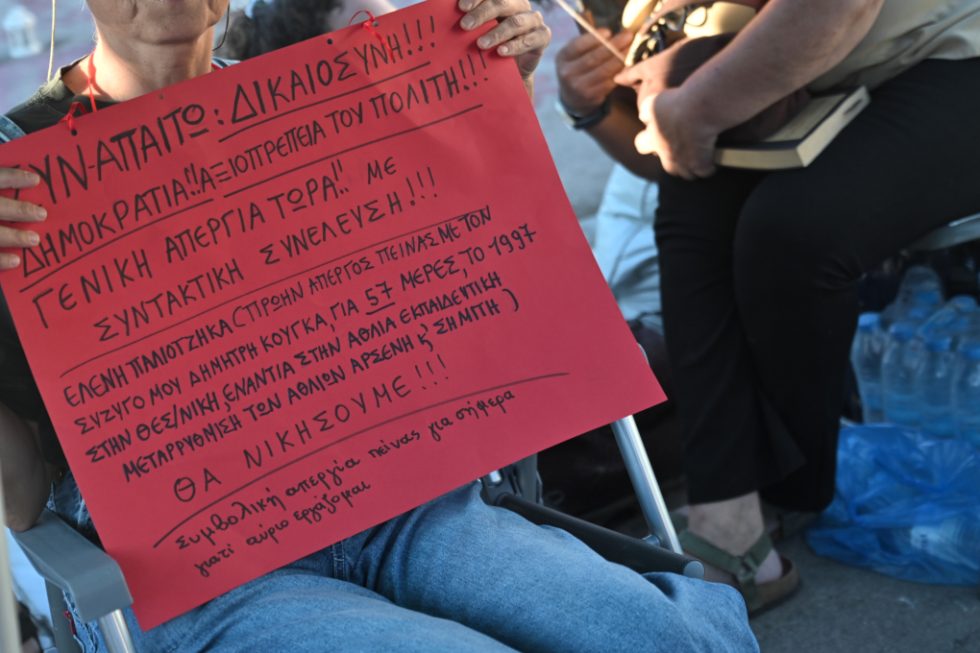 ΣΥΝ-ΑΠΑΙΤΩ: ΔΙΚΑΙΟΣΥΝΗ!!!
ΔΗΜΟΚΡΑΤΙΑ!!ΑΞΙΟΠΡΕΠΕΙΑ ΤΟΥ ΠΟΛΙΤΗ!!!
ΓΕΝΙΚΗ ΑΠΕΡΓΙΑ ΤΩΡΑ!! ΜΕ
ΣΥΝΤΑΚΤΙΚΗ ΣΥΝΕΛΕΥΣΗ!!!
ΕΛΕΝΗ ΠΑΛΙΟΤΖΗΚΑ (ΠΡΩΗΝ ΑΠΕΡΓΟΣ ΠΕΙΝΑΣ ΜΕ ΤΟΝ
ΣΥΖΥΓΟ ΜΟΥ ΔΗΜΗΤΡΗ ΚΟΥΓΚΑ, ΓΙΑ 57 ΜΕΡΕΣ, ΤΟ 1997
ΣΤΗΝ ΘΕΣ/ΝΙΚΗ, ΕΝΑΝΤΙΑ ΣΤΗΝ ΑΘΛΙΑ ΕΚΠΑΙΔΕΥΤΙΚΗ
ΜΕΤΑΡΡΥΘΜΙΣΗ ΤΩΝ ΑΘΛΙΩΝ ΑΡΣΕΝΗ Κ' ΣΗΜΙΤΗ)
ΘΑ ΝΙΚΗΣΟΥΜΕ!!!
Συμβολική απεργία πείνας για σήμερα
γιατί αύριο εργάζομαι